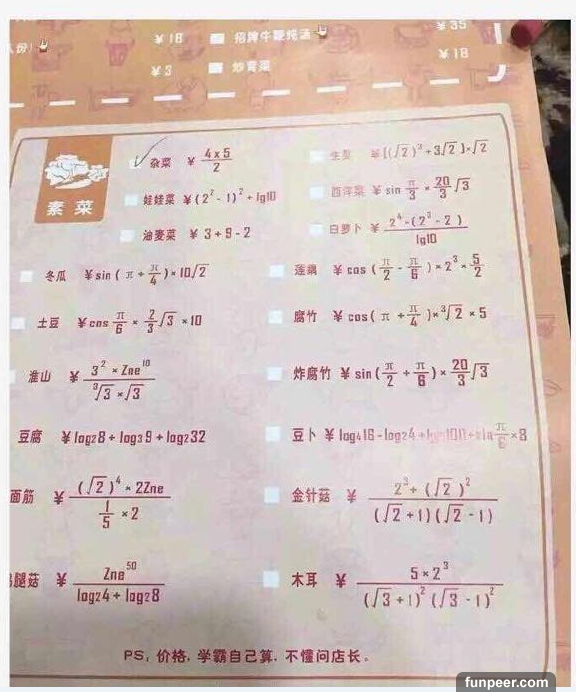 ¥18 招牌牛鞭炖汤 ¥35
¥3 炒青菜 ¥18
素菜
杂菜 ¥ 4×5/2
生菜 ¥[(√2)³+3√2]×√2
娃娃菜 ¥(2²-1)²+lg10
西洋菜 ¥ sin π/3 × 20/3 √3
油麦菜 ¥ 3+9-2
白萝卜 ¥ 2⁴-(2³-2)/lg10
冬瓜 ¥sin(π+π/4)×10√2
莲藕 ¥cos(π/2-π/6)×2³×5/2
土豆 ¥cos π/6 × 2/3 √3 ×10
腐竹 ¥cos(π+π/4)×³√2 ×5
淮山 ¥ 3²×2ne¹⁰/³√3×√3
炸腐竹 ¥sin(π/2+π/6)×20/3 √3
豆腐 ¥log₂8+log₃9+log₂32
豆卜 ¥log₄16-log₂4+lg1011+sin π/6 ×8
面筋 ¥ (√2)⁴×22ne/1/5×2
金针菇 ¥ 2³+(√2)²/(√2+1)(√2-1)
腿菇 ¥ 2ne⁵⁰/log₂4+log₂8
木耳 ¥ 5×2³/(√3+1)²(√3-1)²
PS：价格，学霸自己算，不懂问店长。
funpeer.com